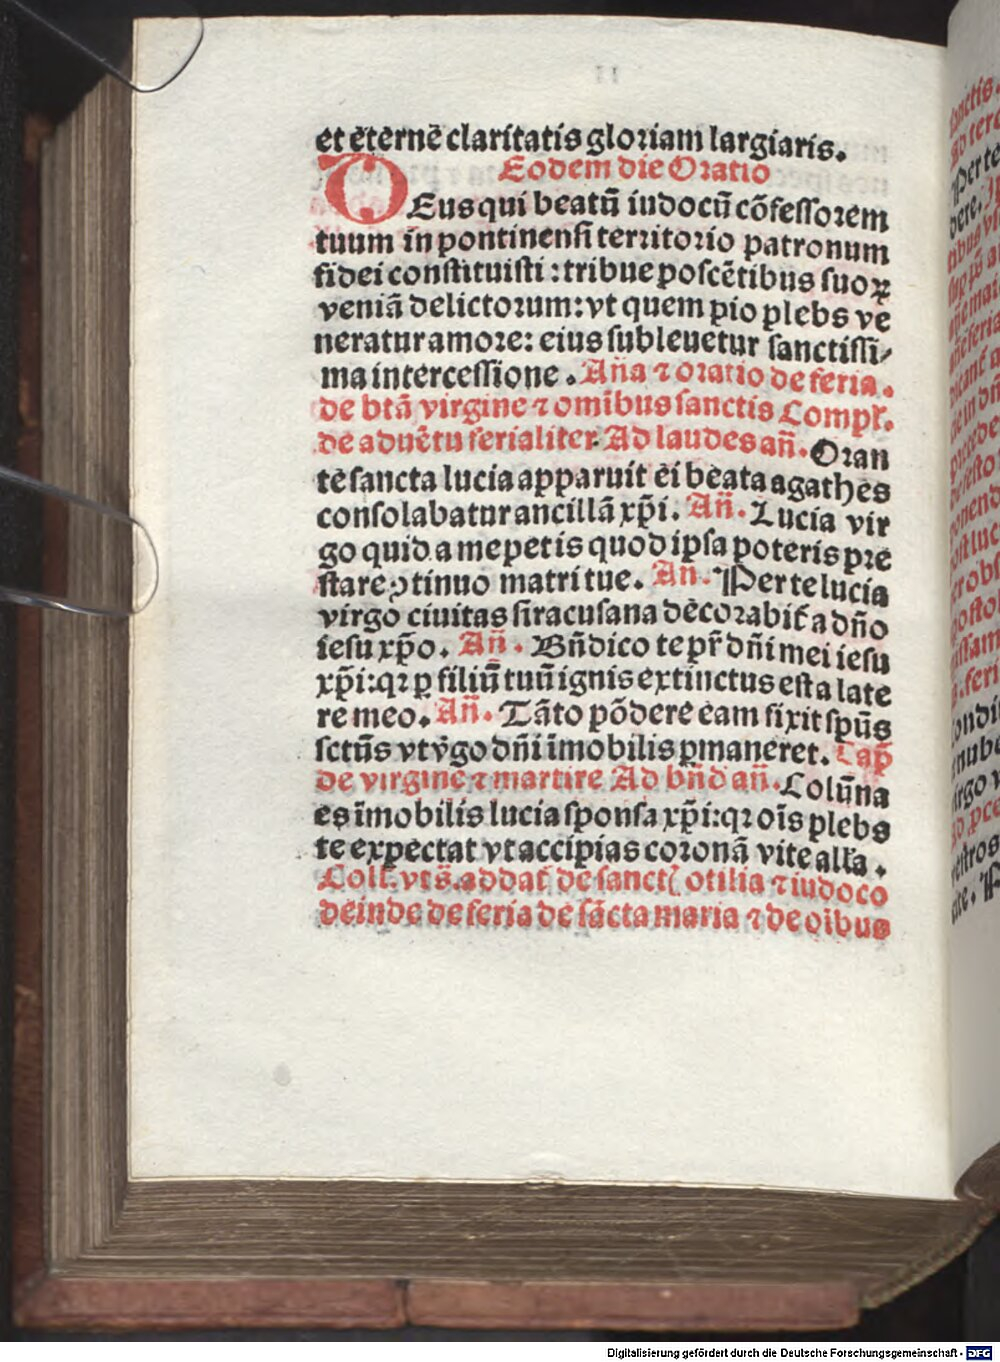 et eternē claritatis gloriam largiaris.
Eodem die Oratio
DEus qui beatū iudocū cōfessorem
tuum in pontinensi territorio patronum
fidei constituisti : tribue poscētibus suoꝝ
veniā delictorum: vt quem pio plebs ve
neratur amore: eius subleuetur sanctissi-
ma intercessione . Aña ⁊ oratio de feria .
de btā virgine ⁊ omībus sanctis Compľ.
de aduētu ferialiter. Ad laudes añ. Oran
te sancta lucia apparuit ei beata agathes
consolabatur ancillā xp̄i. Añ. Lucia vir
go quid a me petis quod ipsa poteris pre
stare ↄtinuo matri tue. An. Per te lucia
virgo ciuitas siracusana decorabit̄ a dño
iesu xp̄o. Añ. Bñdico te pr̄ dñi mei iesu
xp̄i: qꝛ ꝑ filiū tuū ignis extinctus est a late
re meo. Añ. Tāto pōdere eam fixit spūs
sctūs vt v̄go dñi īmobilis ꝑmaneret. Cap̄
de virgine ⁊ martire Ad bñd añ. Colūna
es īmobilis lucia sponsa xp̄i: qꝛ oīs plebs
te expectat vt accipias coronā vite alľa .
Coll. vts̄. addat̄ de sanctꝭ otilia ⁊ iudoco
deinde de feria de sācta maria ⁊ de oībus
11
Digitalisierung gefördert durch die Deutsche Forschungsgemeinschaft - DFG